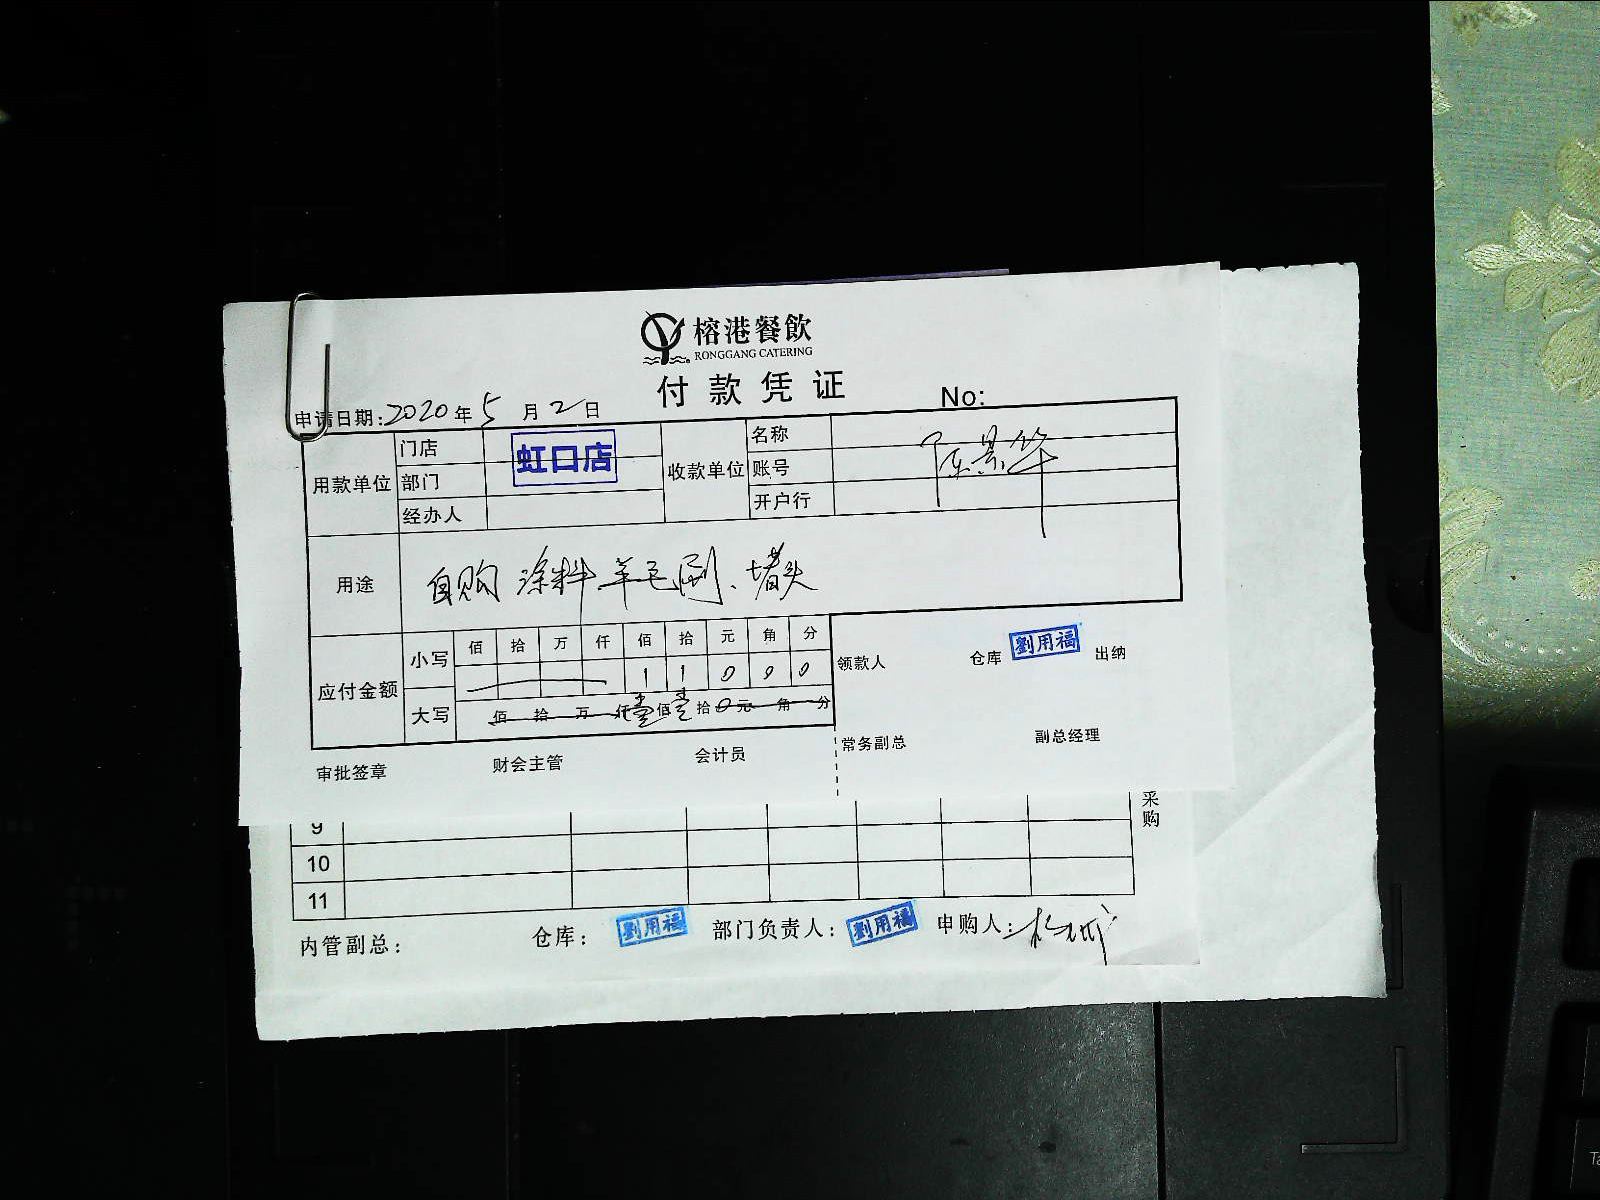 榕港餐飲
RONGGANG CATERING
付款凭证
申请日期:2020年5月2日 No:
用款单位 门店 虹口店 收款单位 名称
部门 账号 陈景华
经办人 开户行
用途 自购涂料.羊毛刷、堵头
应付金额 小写 佰 拾 万 仟 佰 拾 元 角 分
1 1 0 0 0
大写 佰 拾 万 仟 壹 佰 壹 拾 0 元 角 分
领款人 仓库 劉用福 出纳
审批签章 财会主管 会计员 常务副总 副总经理
9
10
11
采购
内管副总: 仓库: 劉用福 部门负责人: 劉用福 申购人:
Ta